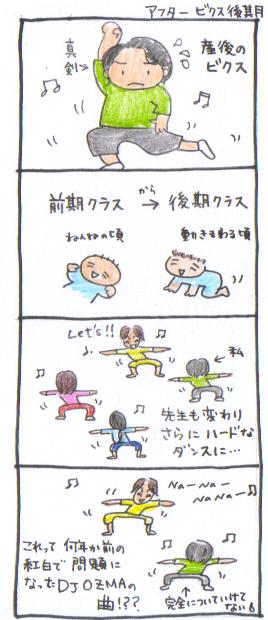 アフタービクス後其月
産後の
ビクス
真
剣
前期クラス
から
→
後期クラス
ねんねの頃
動きまわる頃
Let's!!
私
先生も変わり
さらにハードな
ダンスに…
NA-NA-
NANA-
これって何年か前の
紅白で問題に
なったDJ OZMAの
曲!??
完全についていけて
ない